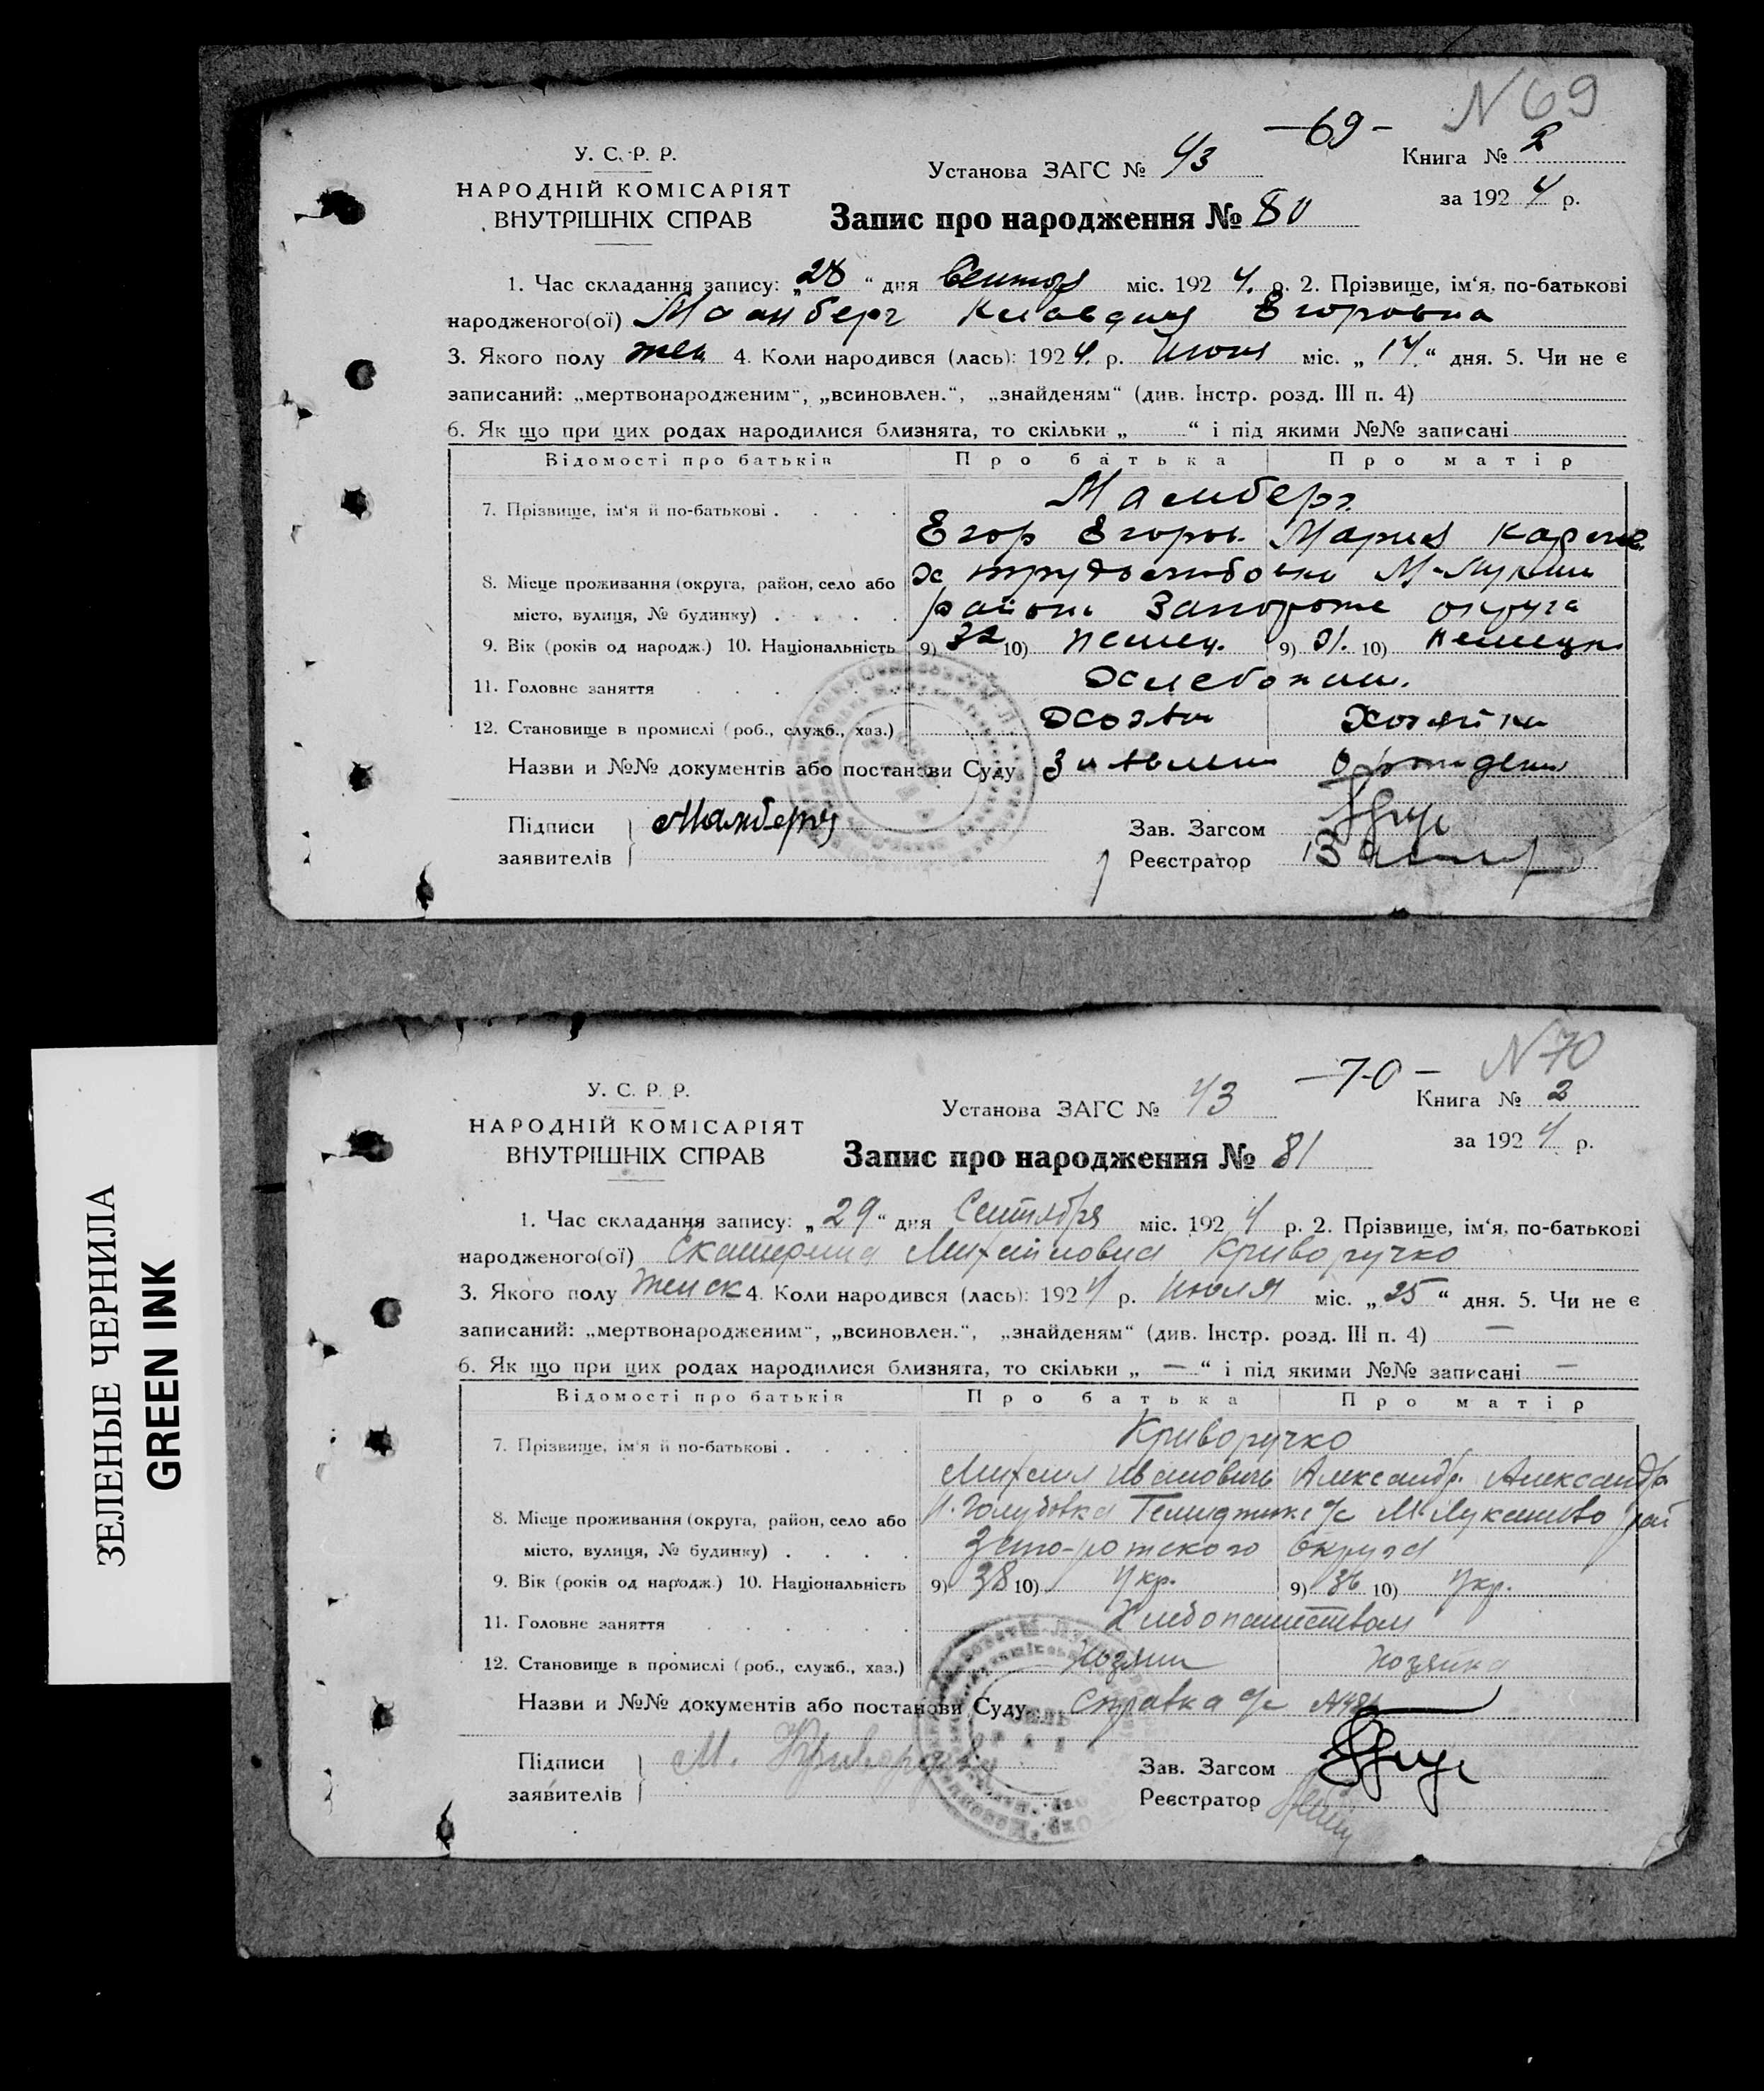 N 69
-69-
У. С. Р. Р.
НАРОДНІЙ КОМІСАРІЯТ
ВНУТРІШНІХ СПРАВ
Установа ЗАГС № 43
Книга № 2
за 1924 р.
Запис про народження № 80
1. Час складання запису: „28“ дня Сентяб міс. 1924. р. 2. Прізвище, ім‘я, по-батькові
народженого(ої) Маанберг Клавдия Егоровна
3. Якого полу жен 4. Коли народився (лась): 1924. р. Июня міс. „14“ дня. 5. Чи не є
записаний: „мертвонародженим“, „всиновлен.“, „знайденям“ (див. Інстр. розд. III п. 4)
6. Як що при цих родах народилися близнята, то скільки „ “ і під якими №№ записані
Відомості про батьків Про батька Про матір
7. Прізвище, ім‘я й по-батькові . . . . Мамберг
Егор Егоров. Мария
8. Місце проживання (округа, район, село або х М-Лукаш
місто, вулиця, № будинку) . . . . . района Запороже округа
9. Вік (років од народж.) 10. Національність 9) 32 10) немец. 9) 31. 10) немецк
11. Головне заняття . . . . . Хлебопаш.
12. Становище в промислі (роб., служб., хаз.) Хозяин Хозяйка
Назви и №№ документів або постанови Суду Заявлени О рождени
Підписи
заявителів
Мамберг
Зав. Загсом
Реєстратор
N 70
-70-
У. С. Р. Р.
НАРОДНІЙ КОМІСАРІЯТ
ВНУТРІШНІХ СПРАВ
Установа ЗАГС № 43
Книга № 2
за 1924 р.
Запис про народження № 81
1. Час складання запису: „29“ дня Сентября міс. 1924 р. 2. Прізвище, ім‘я, по-батькові
народженого(ої) Екатерина Михайловна Криворучко
3. Якого полу женск 4. Коли народився (лась): 1924 р. Июля міс. „25“ дня. 5. Чи не є
записаний: „мертвонародженим“, „всиновлен.“, „знайденям“ (див. Інстр. розд. III п. 4) —
6. Як що при цих родах народилися близнята, то скільки „ — “ і під якими №№ записані —
Відомості про батьків Про батька Про матір
7. Прізвище, ім‘я й по-батькові . . . . Криворучко
Михаил Иванович Александр. Александр
8. Місце проживання (округа, район, село або Голубовка с/с М-Лукашево рай
місто, вулиця, № будинку) . . . . Запо-рожского Округа
9. Вік (років од народж.) 10. Національність 9) 38 10) Укр. 9) 36 10) Укр.
11. Головне заняття . . . . . . Хлебопашеством
12. Становище в промислі (роб., служб., хаз.) Хозяин Хозяйка
Назви и №№ документів або постанови Суду Справка с/с № 481
Підписи
заявителів
М. Криворучко
Зав. Загсом
Реєстратор
ЗЕЛЕНЫЕ ЧЕРНИЛА
GREEN INK